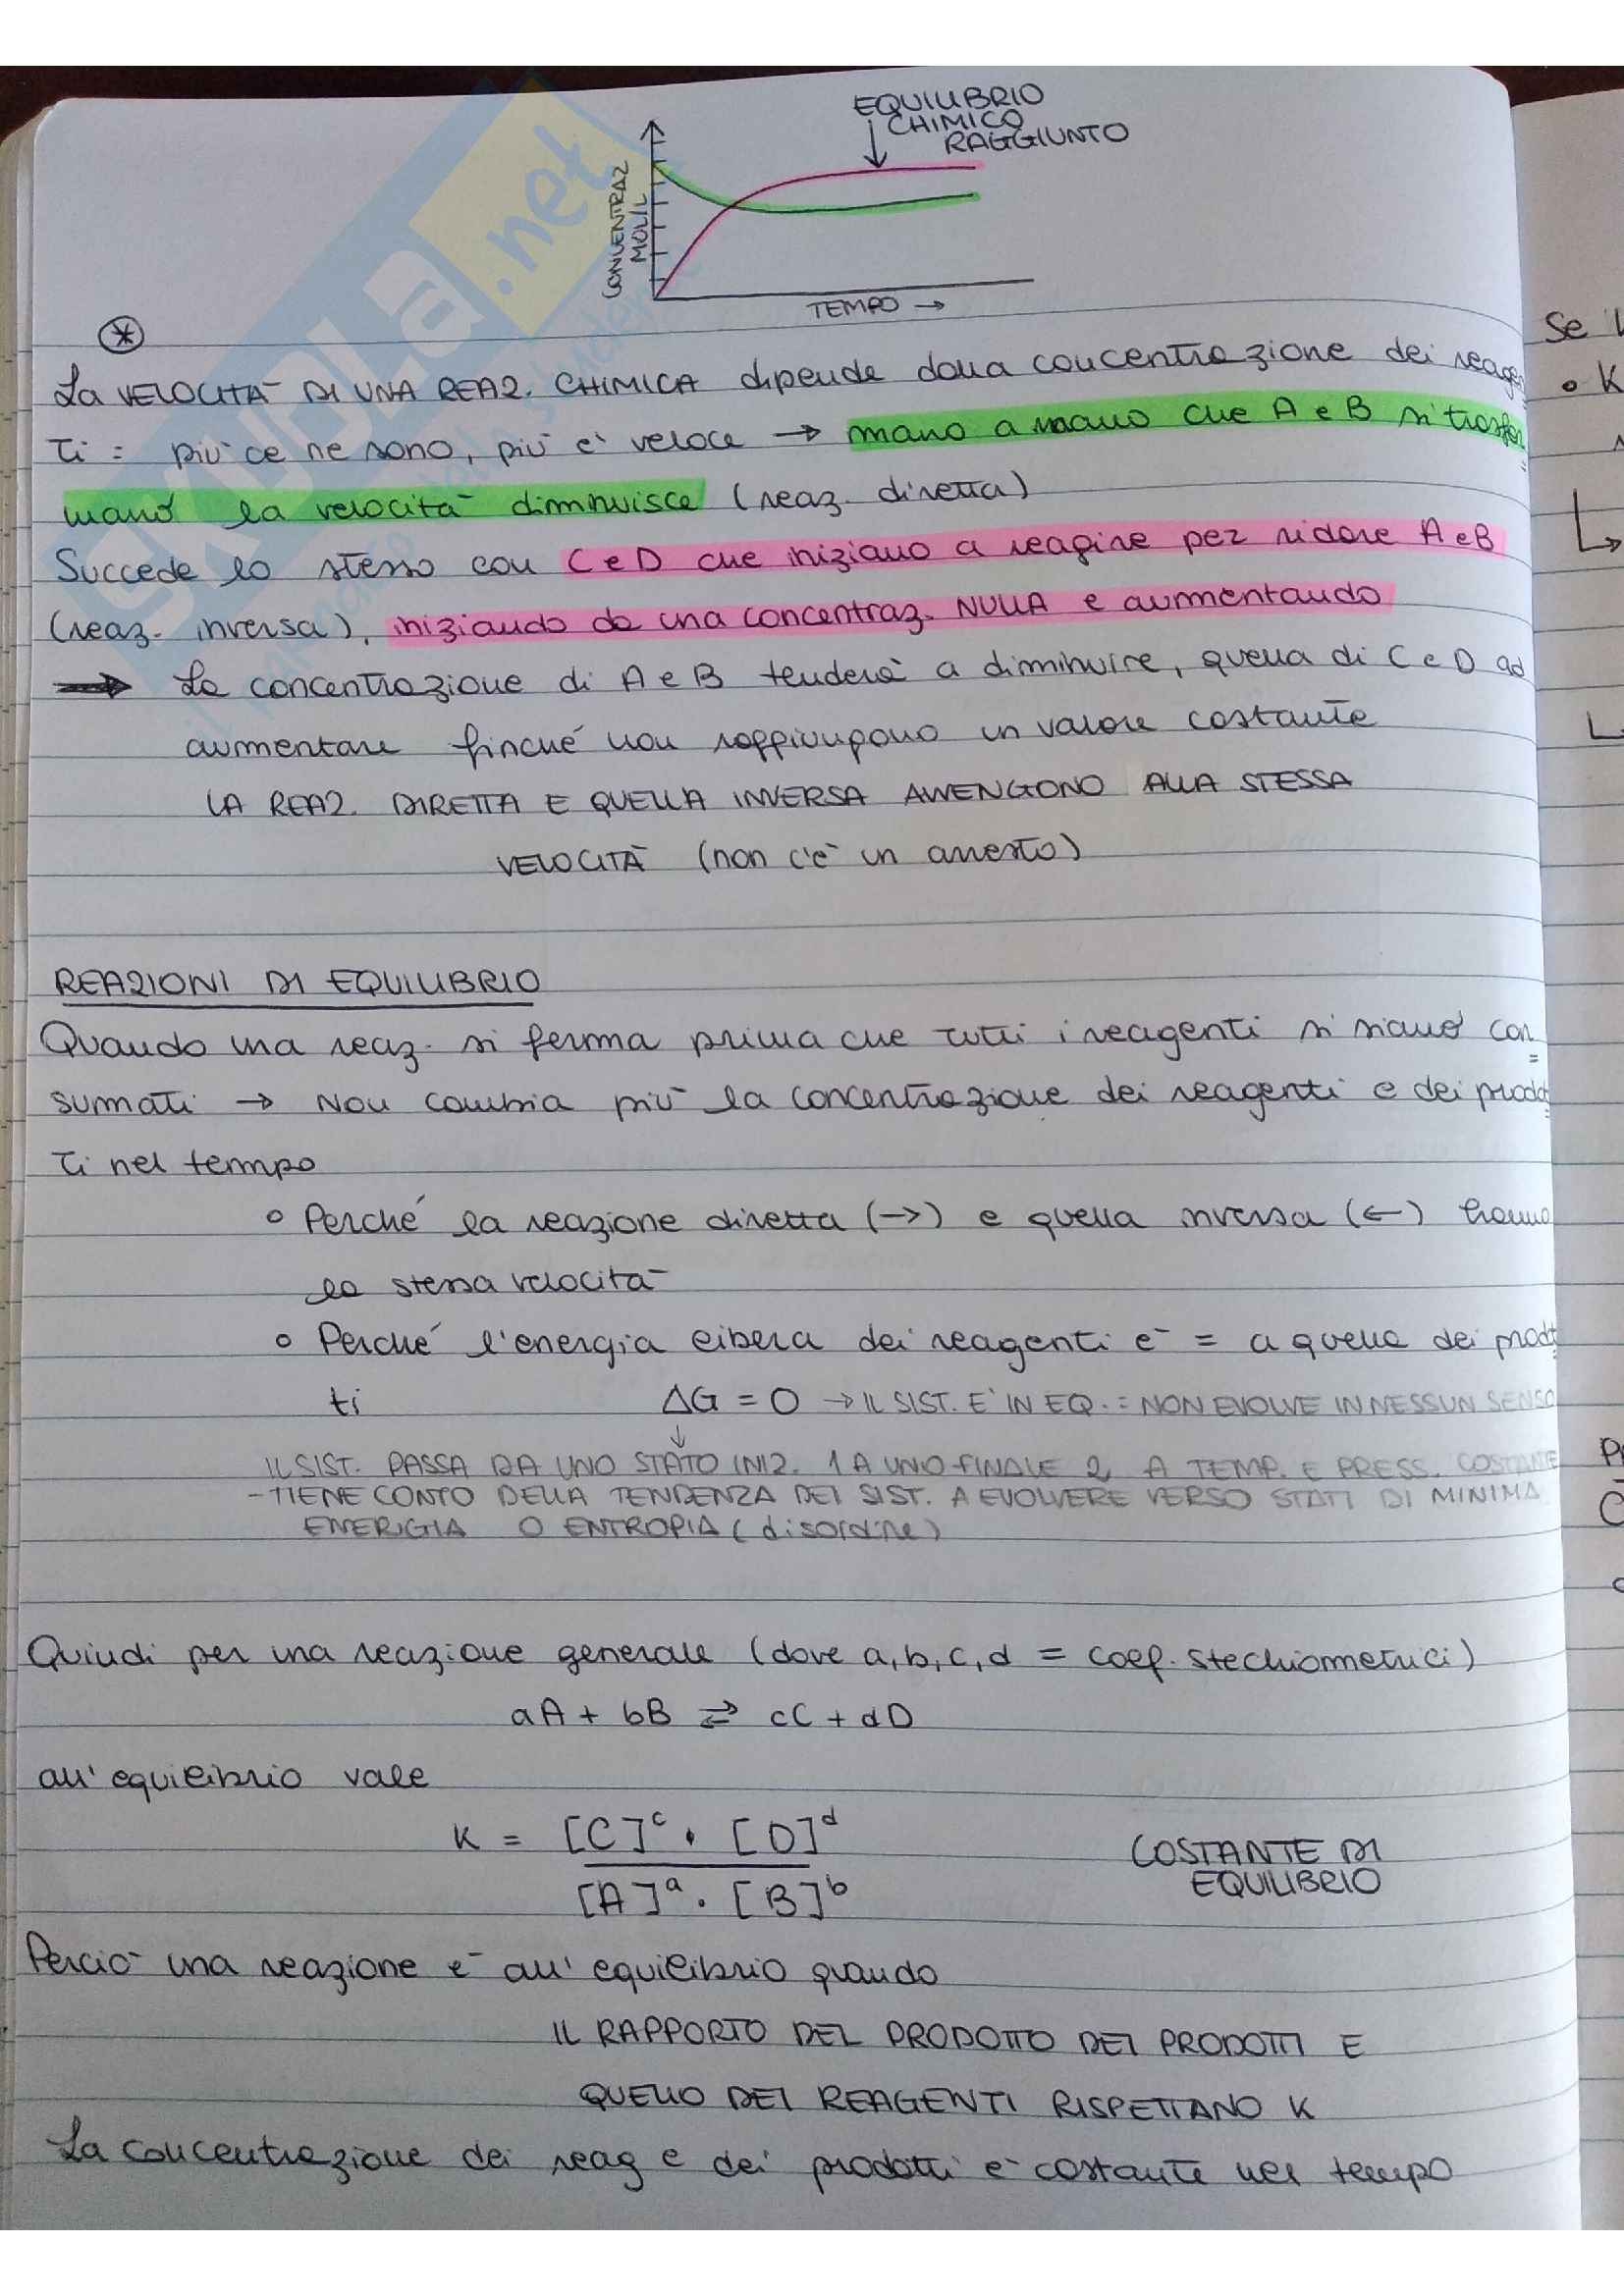 EQUILIBRIO
CHIMICO
RAGGIUNTO
CONCENTRAZ
MOL/L
TEMPO →
SKUOLA.net
*
La VELOCITÀ DI UNA REAZ. CHIMICA dipende dalla concentrazione dei reagen
ti = più ce ne sono, più è veloce → mano a mano che A e B si trasfor
mano la velocità diminuisce (reaz. diretta)
Succede lo stesso con C e D che iniziano a reagire per ridare A e B
(reaz. inversa), iniziando da una concentraz. NULLA e aumentando
→ La concentrazione di A e B tenderà a diminuire, quella di C e D ad
aumentare finché non raggiungono un valore costante
LA REAZ. DIRETTA E QUELLA INVERSA AVVENGONO ALLA STESSA
VELOCITÀ (non c'è un arresto)
REAZIONI DI EQUILIBRIO
Quando una reaz. si ferma prima che tutti i reagenti si siano con
sumati → Non cambia più la concentrazione dei reagenti e dei prodot
ti nel tempo
° Perché la reazione diretta (→) e quella inversa (←) hanno
la stessa velocità
° Perché l'energia libera dei reagenti è = a quella dei prodot
ti ΔG = 0 → IL SIST. E' IN EQ. = NON EVOLVE IN NESSUN SENSO
↓
IL SIST. PASSA DA UNO STATO INIZ. 1 A UNO FINALE 2, A TEMP. E PRESS. COSTANTE
- TIENE CONTO DELLA TENDENZA DEI SIST. A EVOLVERE VERSO STATI DI MINIMA
ENERGIA O ENTROPIA (disordine)
Quindi per una reazione generale (dove a, b, c, d = coef. stechiometrici)
aA + bB ⇄ cC + dD
all'equilibrio vale
K = [C]ᶜ · [D]ᵈ
[A]ᵃ · [B]ᵇ
COSTANTE DI
EQUILIBRIO
Perciò una reazione è all'equilibrio quando
IL RAPPORTO DEL PRODOTTO DEI PRODOTTI E
QUELLO DEI REAGENTI RISPETTANO K
La concentrazione dei reag e dei prodotti è costante nel tempo
Se
° K